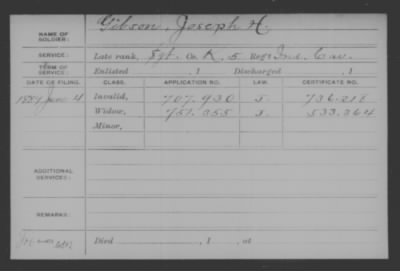 NAME OF SOLDIER: Gibson, Joseph H.
SERVICE: Late rank, Sgt. Co. K, 5 Reg't Ind. Cav.
TERM OF SERVICE: Enlisted , 1 Discharged , 1
DATE OF FILING. CLASS. APPLICATION NO. LAW. CERTIFICATE NO.
1889 June 4 Invalid, 707.930 J. 736.218
Widow, 751.355 J. 533.364
Minor,
ADDITIONAL SERVICES:
REMARKS:
Died , 1 , at